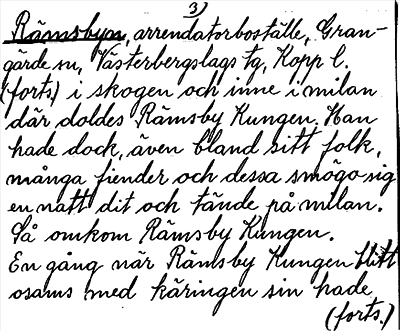 3)
Rämsbyn, arrendatorboställe, Gran-
gärde sn, Västerbergslags tg, Kopp l.
(forts.) i skogen och inne i milan
där doldes Rämsby Kungen. Han
hade dock, även bland sitt folk,
många fiender och dessa smögo sig
en natt dit och tände på milan.
Så omkom Rämsby Kungen.
En gång när Rämsby Kungen blitt
osams med käringen sin hade
(forts.)